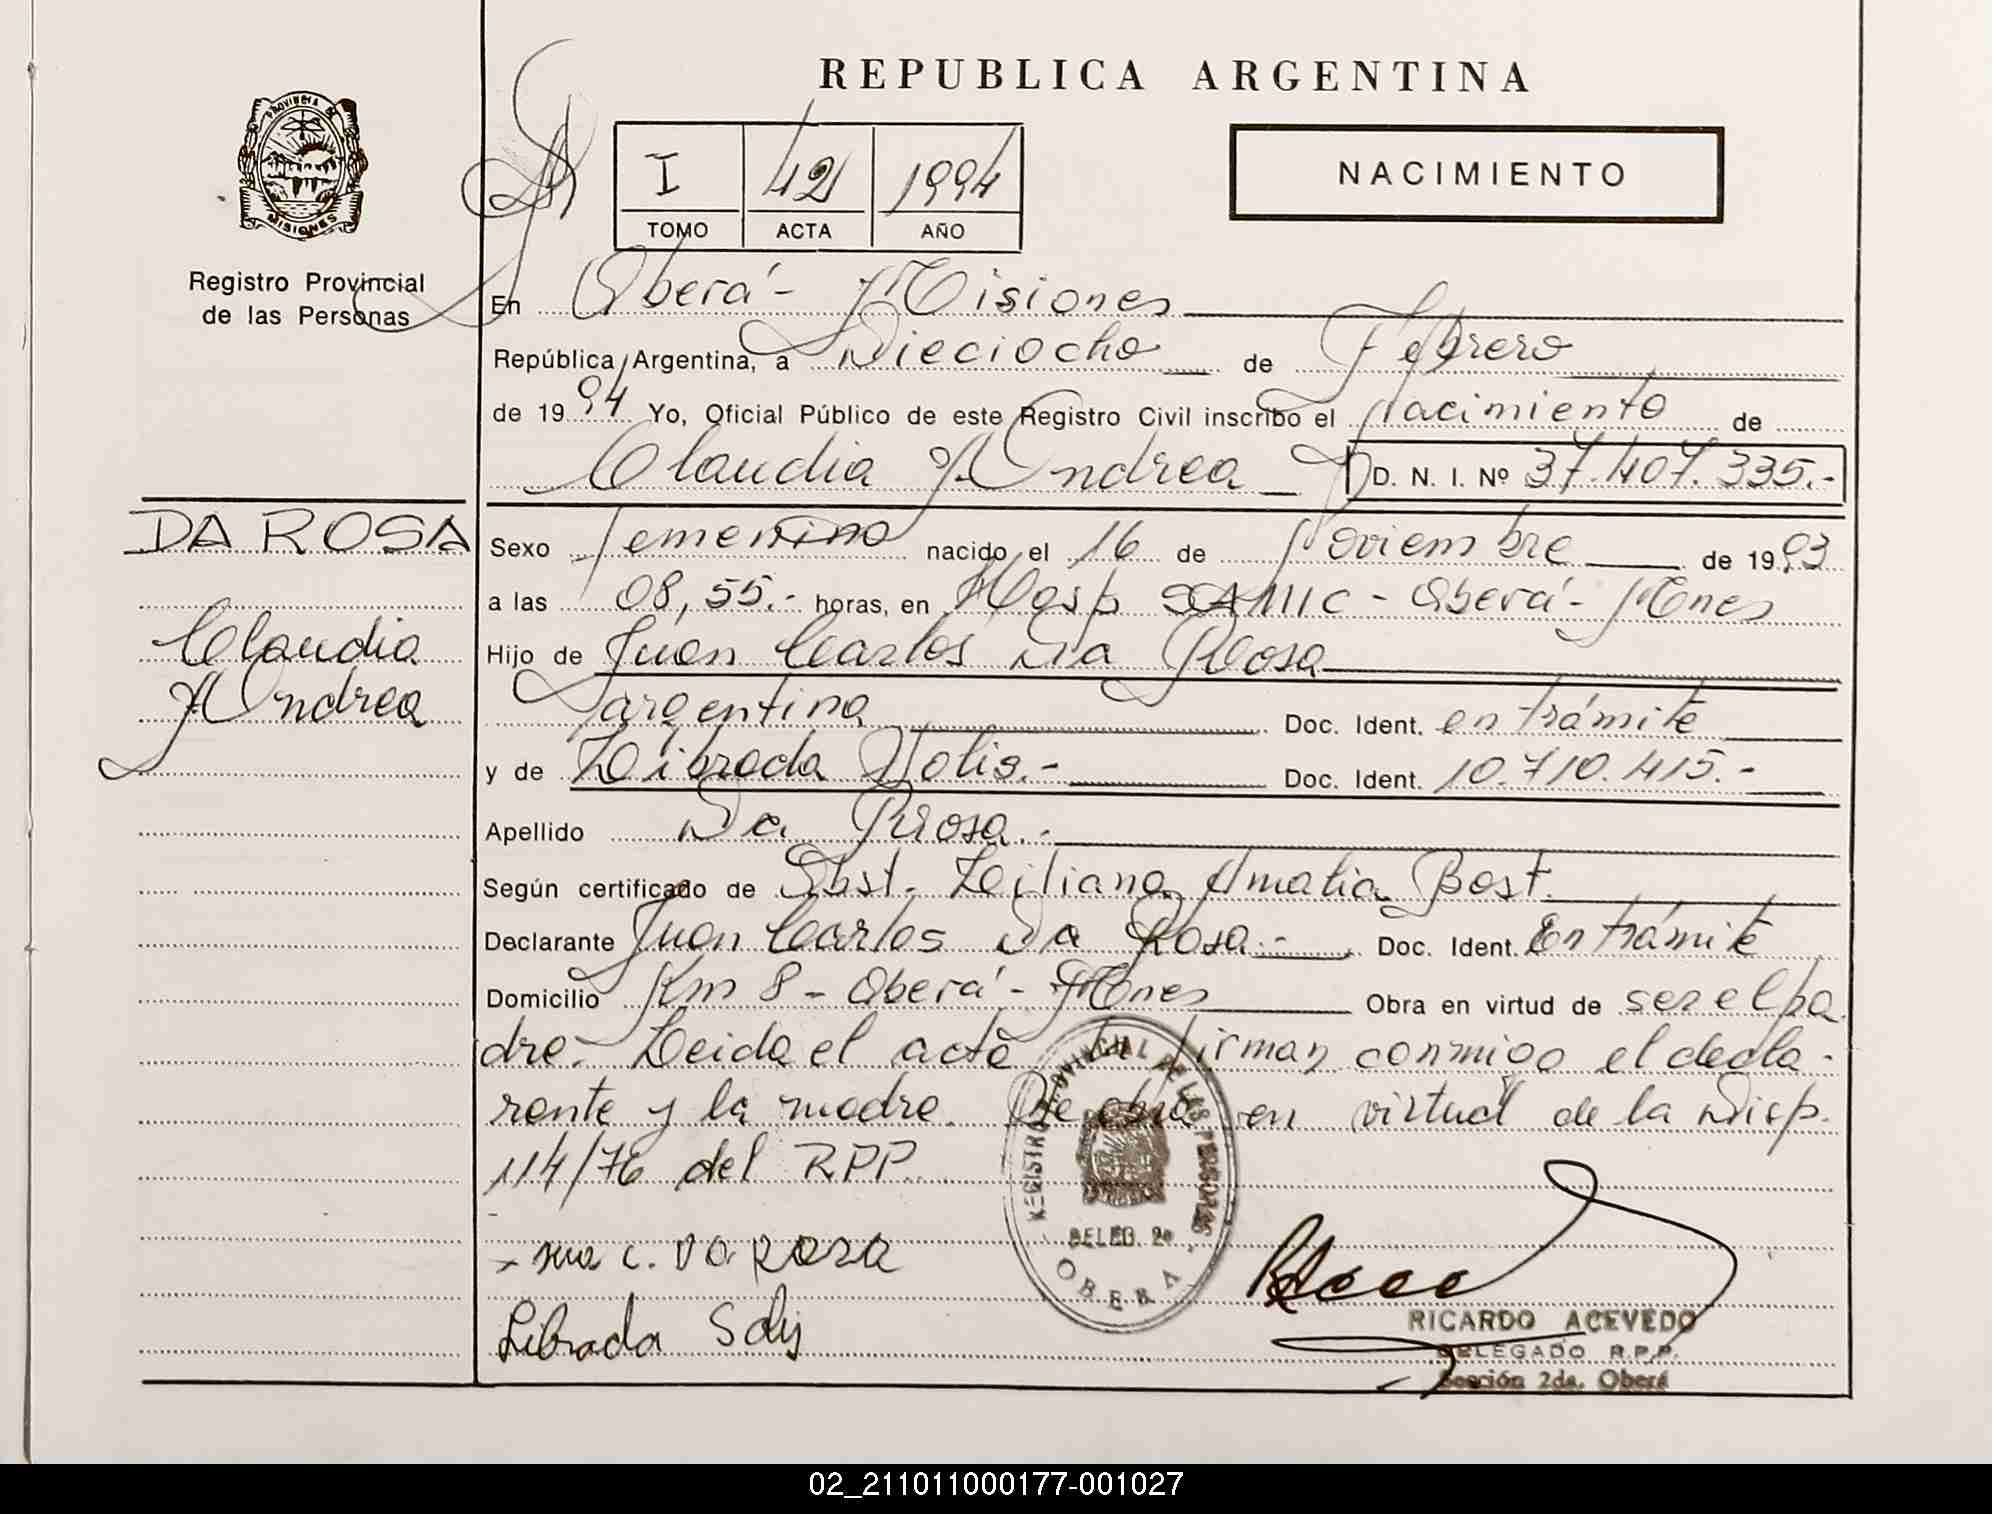 REPUBLICA ARGENTINA
PROVINCIA DE
MISIONES
Registro Provincial
de las Personas
I 42 1994
TOMO ACTA AÑO
NACIMIENTO
En Oberá - Misiones
República Argentina, a Dieciocho de Febrero
de 1994 Yo, Oficial Público de este Registro Civil inscribo el Nacimiento de
Claudia Andrea D. N. I. Nº 37.407.335.-
DA ROSA
Claudia
Andrea
Sexo Femenino nacido el 16 de Noviembre de 1993
a las 08,55.- horas, en Hosp SAMIC - Oberá - Mnes
Hijo de Juan Carlos Da Rosa
argentina Doc. Ident. en trámite
y de Librada Solis.- Doc. Ident. 10.710.415.-
Apellido Da Rosa.-
Según certificado de Obst. Liliana Amalia Bost.
Declarante Juan Carlos Da Rosa.- Doc. Ident. En trámite
Domicilio Km 8 - Oberá - Mnes Obra en virtud de ser el pa
dre. Leida el acta la firman conmigo el decla-
rante y la madre. Se obra en virtud de la Disp.
114/76 del RPP.
REGISTRO PROVINCIAL DE LAS PERSONAS
DELEG. 2a
OBERA
C. DA ROSA
Librada Solis
RICARDO ACEVEDO
DELEGADO R.P.P.
Sección 2da. Oberá
02_211011000177-001027